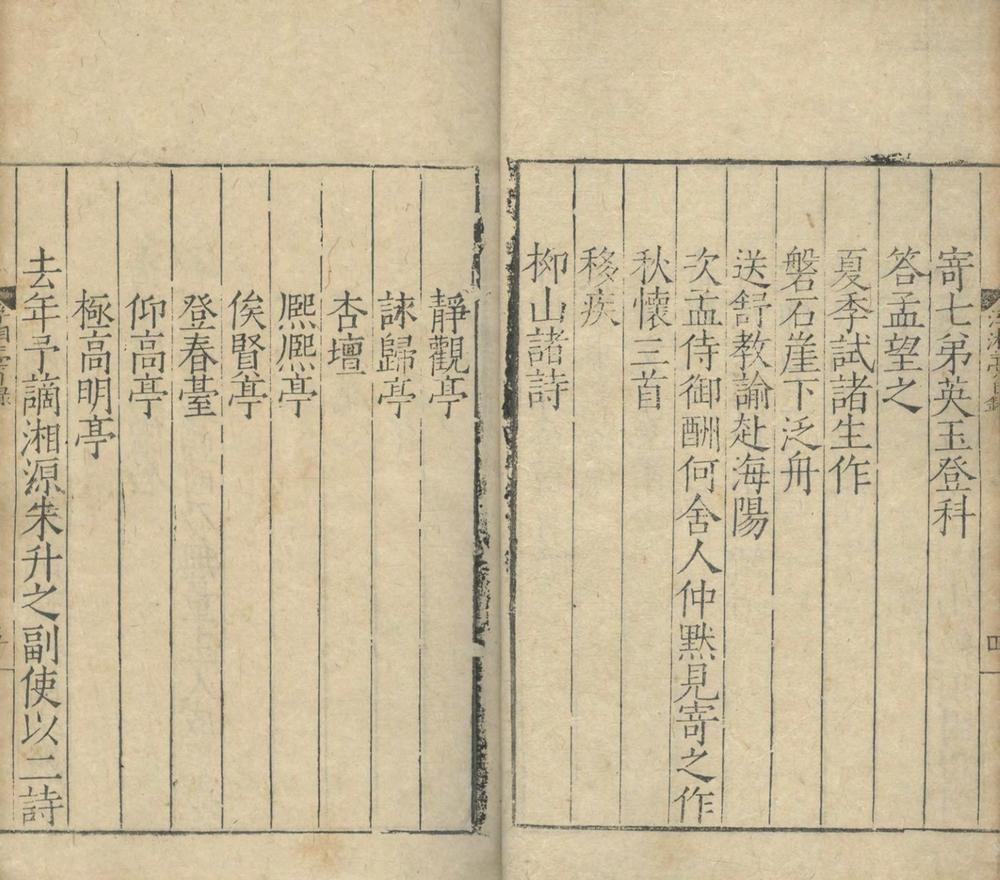 寄七弟英玉登科
答孟望之
夏季試諸生作
磐石崖下泛舟
送舒教諭赴海陽
次孟侍御酬何舍人仲默見寄之作
秋懷三首
移疾
柳山諸詩
靜觀亭
詠歸亭
杏壇
熈熈亭
俟賢亭
登春臺
仰高亭
極高明亭
去年予謫湘源朱升之副使以二詩